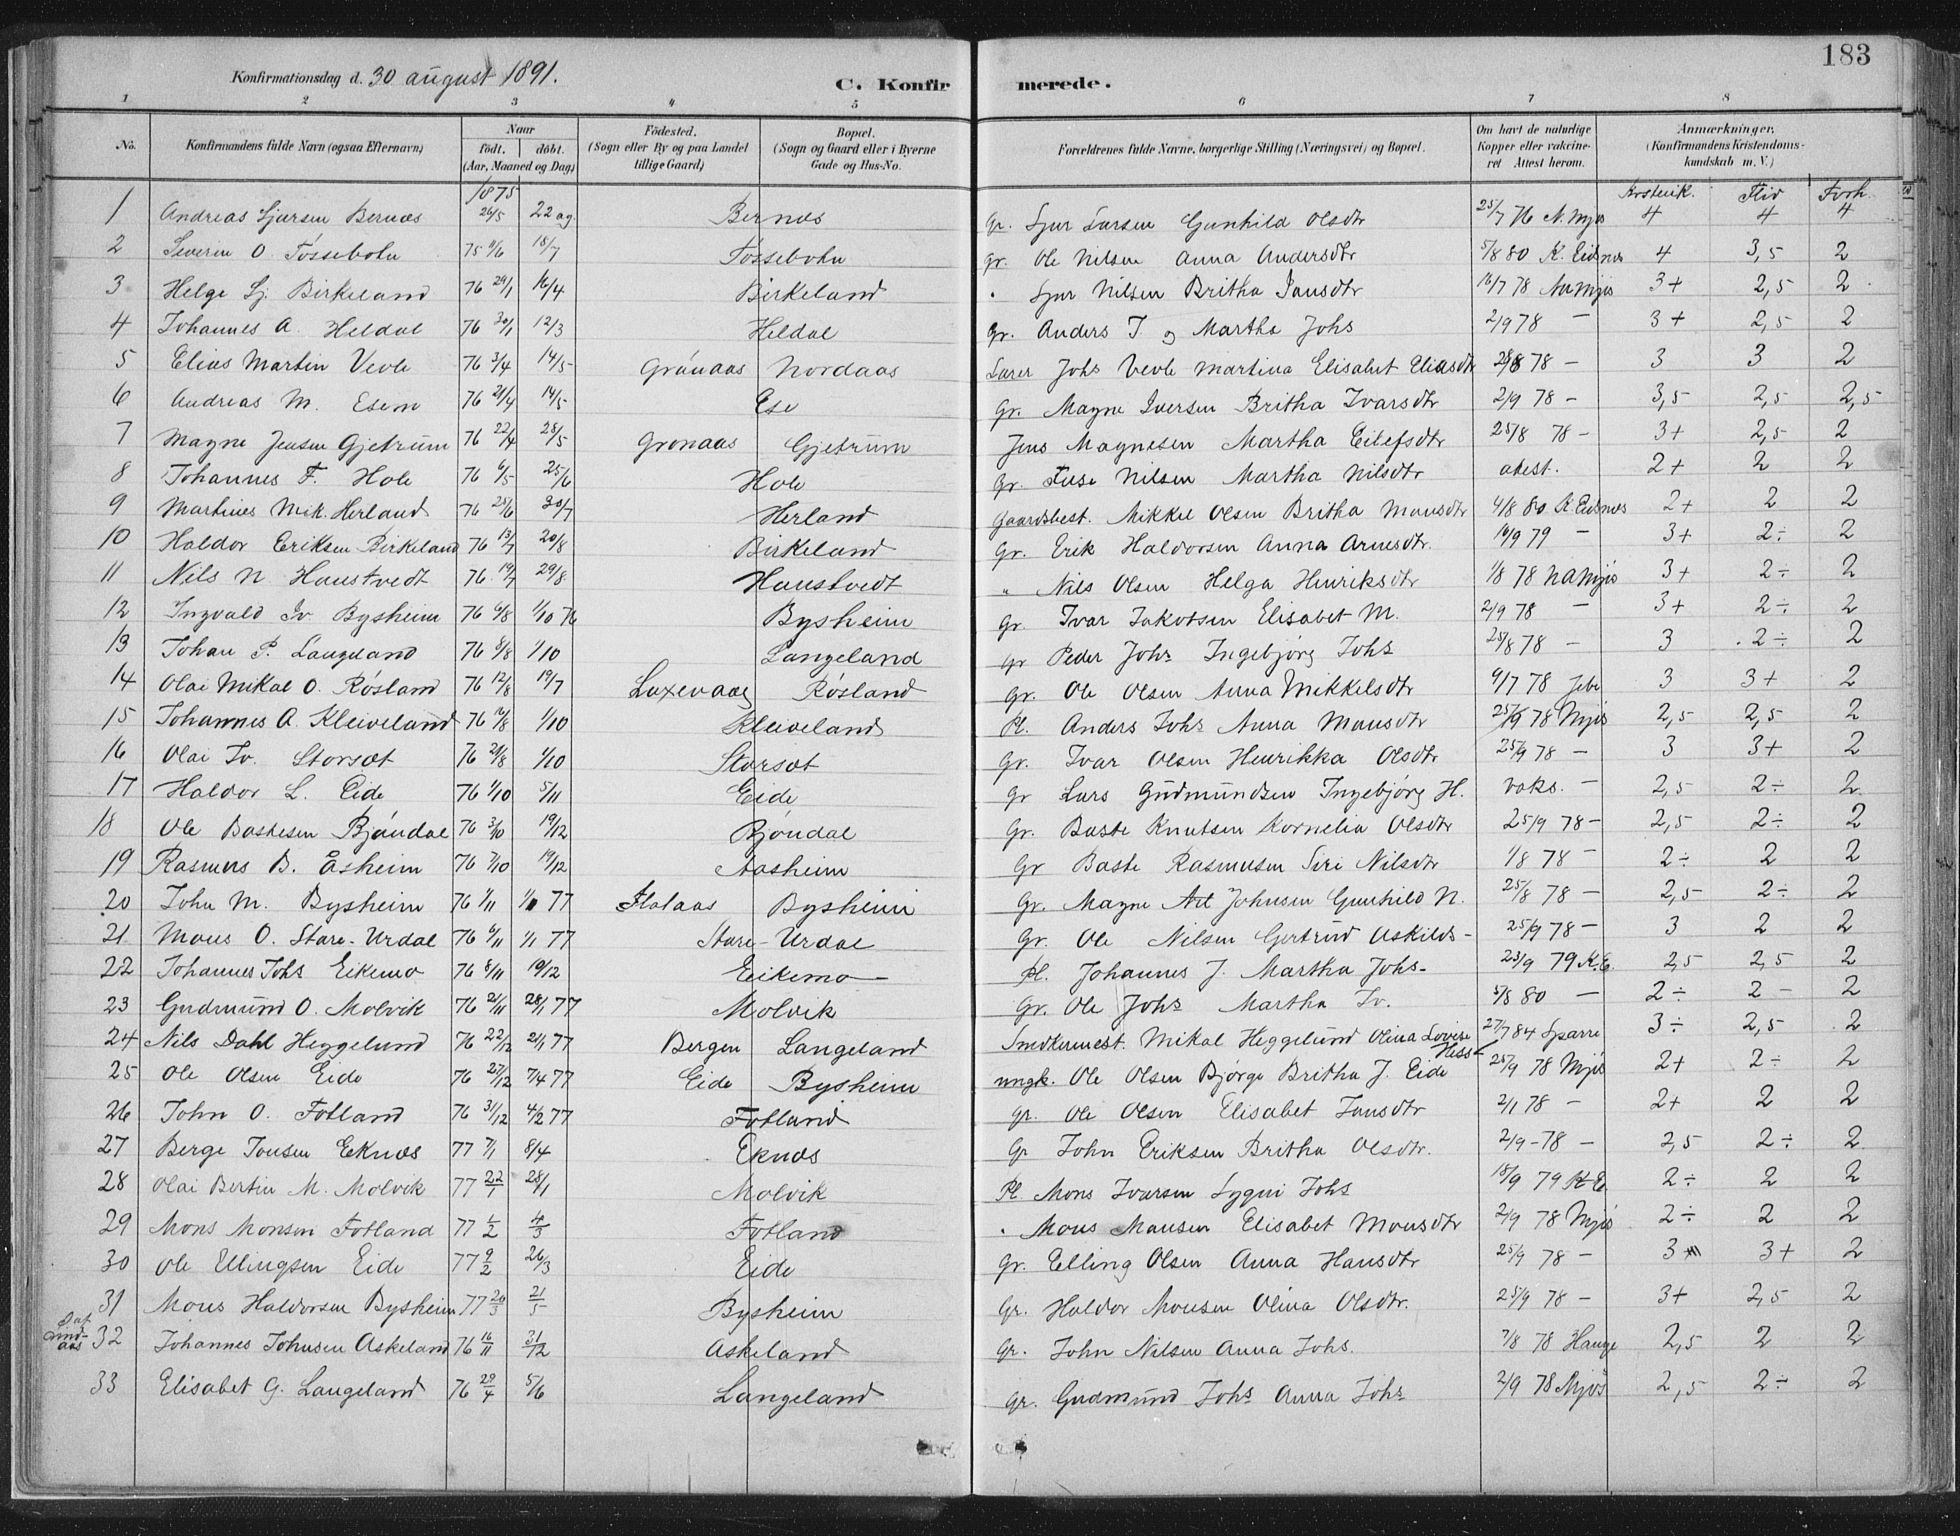 183
Konfirmationsdag d. 30 august 1891.
C. Konfirmerede.
1 2 3 4 5 6 7 8
No. Konfirmandens fulde Navn (ogsaa Efternavn) Naar födt. döbt. (Aar, Maaned og Dag) Födested. (Sogn eller By og paa Landet tillige Gaard) Bopæl. (Sogn og Gaard eller i Byerne Gade og Hus-No. Forældrenes fulde Navne, borgerlige Stilling (Næringsvei) og Bopæl. Om havt de naturlige Kopper eller vakcineret Attest herom. Anmærkninger, (Konfirmandens Kristendomskundskab m. V.)
1875 Flid Forh
1 Andreas Sjursen Bernæs 26/5 22 ag. Bernæs Gr. Sjur Larsen Gunhild Olsdtr 25/7 76 N. Mjös 4 4 4
2 Severin O. Tössebotn 75 18/7 Tössebotn Gr. Ole Nilsen Anna Andersdtr 5/8 80 K. Eidsnes 4 3,5 2
3 Helge Sj. Birkeland 76 29/1 16/4 Birkeland " Sjur Nilsen Britha Jansdtr 16/7 78 3+ 2,5 2
4 Johannes A. Heldal 76 30/1 12/3 Heldal Gr. Anders J og Martha Johs 2/9 78 - 3+ 2,5 2
5 Elias Martin Vevle 76 3/4 14/5 Grönaas Nordaas Lærer Johs Vevle Martina Elisabet Eliasdtr 28/8 78 - 3 3 2
6 Andreas M. Esem 76 21/4 14/5 Ese Gr. Magne Iversen Britha Ivarsdtr 2/9 78 - 3,5 2,5 2,5
7 Magne Jensen Gjetrum 76 22/4 28/5 Gronaas Gjetrum Jens Magnesen Martha Eilefsdtr 25/8 78 - 3+ 2,5 2
8 Johannes F. Hole 76 6/5 25/6 Hole Gr. Nilsen Martha Nilsdtr atest. 2+ 2 2
9 Martines Mik. Herland 76 25/6 30/7 Herland Gaardsbest. Mikkel Olsen Britha Monsdtr 4/8 80 K Eidsnes 2+ 2 2
10 Haldor Eriksen Birkeland 76 13/7 20/8 Birkeland Gr. Erik Haldorsen Anna Arnesdtr. 16/9 79 - 3+ 2÷ 2
11 Nils N Haustvedt 76 19/7 29/8 Haustvedt " Nils Olsen Helga Henriksdtr 1/8 78 NAMjös 3+ 2÷ 2
12 Ingvald Iv Bysheim 76 6/8 1/10 76 Bysheim Gr. Ivar Jakobsen Elisabet M. 2/9 78 - 3+ 2÷ 2
13 Johan P. Langeland 76 8/8 1/10 Langeland Gr Peder Johs Ingebjörg Johs 25/8 78 - 3 2÷ 2
14 Olai Mikal O. Røsland 76 12/8 19/7 Laxevaag Røsland Gr. Ole Olsen Anna Mikkelsdtr 9/7 78 Jebe 3 3+ 2
15 Johannes A. Kleiveland 76 16/8 1/10 Kleiveland Pl. Anders Johs Anna Monsdtr 25/9 78 Mjös 2,5 2,5 2
16 Olai Iv. Storsæt 76 21/8 1/10 Storsæt Gr. Ivar Olsen Henrikka Olsdtr 25/9 78 - 3 3+ 2
17 Haldor L. Eide 76 1/10 5/11 Eide Gr Lars Gudmundsen Ingebjörg H. vaks. - 2,5 2÷ 2
18 Ole Bastesen Bjöndal 76 3/10 19/12 Bjöndal Gr. Baste Knutsen Kornelia Olsdtr 25/9 78 - 2,5 2÷ 2
19 Rasmus B. Åsheim 76 7/10 19/12 Aasheim Gr Baste Rasmusen Siri Nilsdtr 1/8 78 - 2÷ 2 2
20 John M. Bysheim 76 1/11 77 Bysheim Gr. Magne Johnsen Gunhild N. 25/8 78 - 2,5 2÷ 2
21 Mons O. Stare-Urdal 76 6/11 1/1 77 Stare-Urdal Gr. Ole Nilsen Gertrud Askilds- 25/9 78 - 3 2 2
22 Johannes Johs Eikemo 76 8/11 19/12 Eikemo Pl. Johannes J. Martha Johs- 23/9 79 K.E. 2,5 2,5 2
23 Gudmund O. Molvik 76 21/11 28/1 77 Molvik Gr. Ole Johs Martha Iv. 5/8 80 - 2÷ 2 - 2
24 Nils Dahl Heggelund 76 22/12 21/1 77 Bergen Langeland Smedkermest. Mikal Heggelund Olina Lovise Hess 27/7 84 Sparre 3÷ 2,5 2
25 Ole Olsen Eide 76 27/12 7/4 77 Eide Bysheim ungk. Ole Olsen Bjørge Britha J. Eide 25/9 78 Mjös 2+ 2÷ 2
26 John O. Fotland 76 31/12 4/2 77 Fotland gr. Ole Olsen Elisabet Jansdtr 2/1 78 - 2+ 2 2
27 Berge Jonsen Eknæs 77 7/1 8/4 Eknæs Gr John Eriksen Britha Olsdtr. 2/9 - 78 - 2,5 2÷ 2
28 Olai Bertin M. Molvik 77 22/1 28/1 Molvik Pl. Mons Ivarsen Sygni Johs 18/9 79 K E. 2÷ 2 2
29 Mons Monsen Fotland 77 1/2 4/3 Fotland " Mons Monsen Elisabet Monsdtr 2/9 78 Mjös 2÷ 2 2
30 Ole Ellingsen Eide 77 9/2 26/3 Eide Gr. Elling Olsen Anna Hansdtr 25/9 78 - 3 3+ 2
31 Mons Haldorsen Bysheim 77 20/3 21/5 Bysheim Gr. Haldor Monsen Olina Olsdtr. 25/9 78 - 3+ 2,5 2
32 Johannes Johnsen Askeland 76 16/11 31/12 Askeland Gr. John Nilsen Anna Johs. 7/8 78 Hauge 2,5 2 2
33 Elisabet G. Langeland 76 29/4 5/6 Langeland Gr. Gudmund Johs Anna Johs 2/9 78 Mjös 2,5 2÷ 2